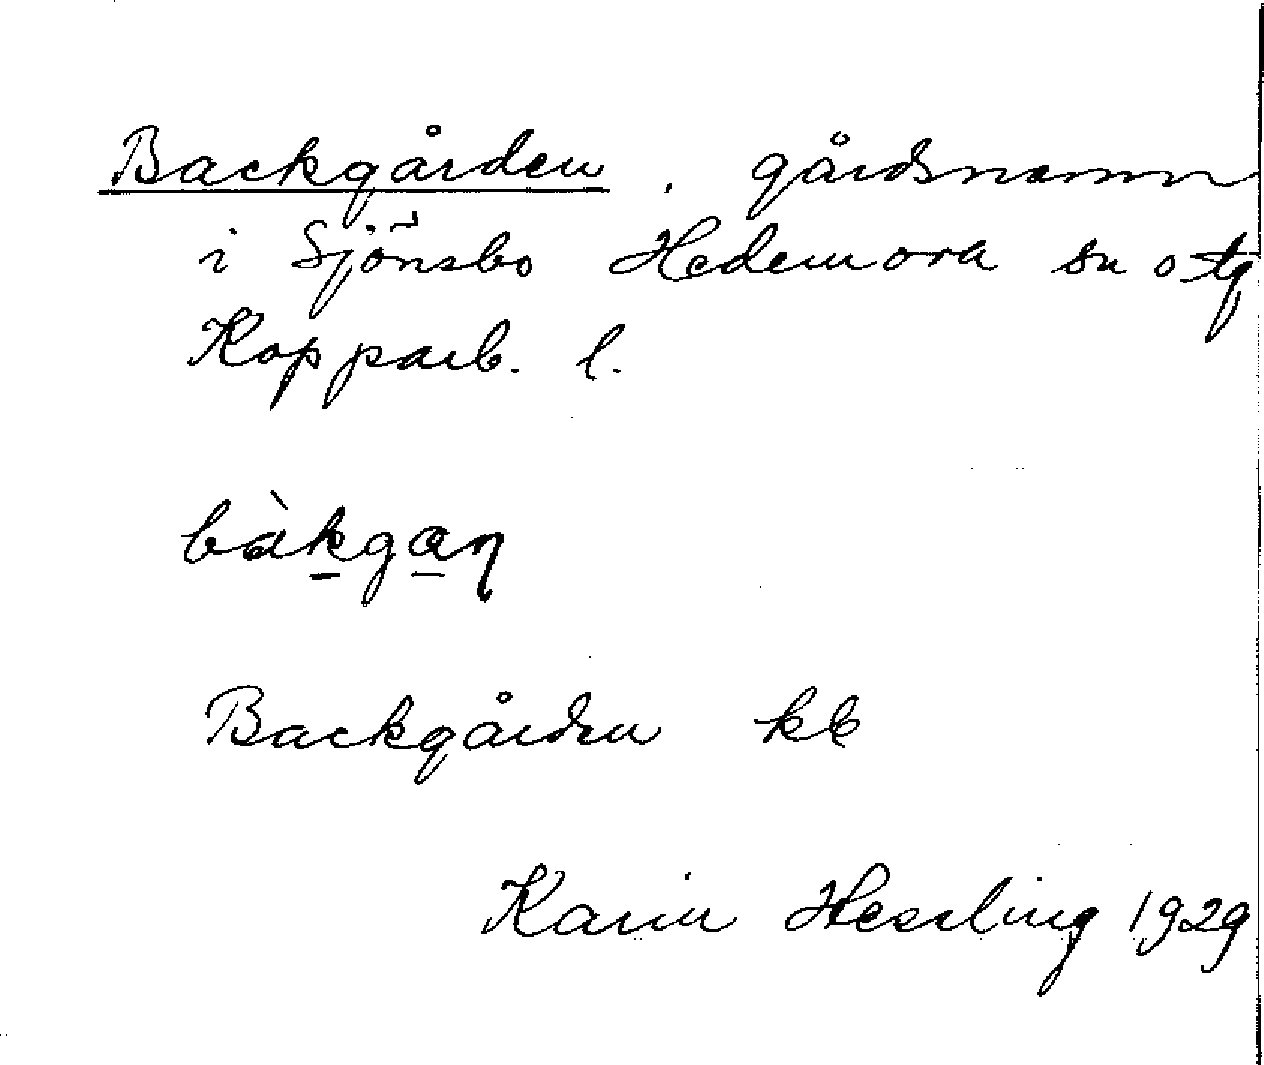 Backgården, gårdsnamn
i Sjönsbo Hedemora sn o tg
Kopparb. l.
bàkgaɳ
Backgården kb
Karin Hessling 1929